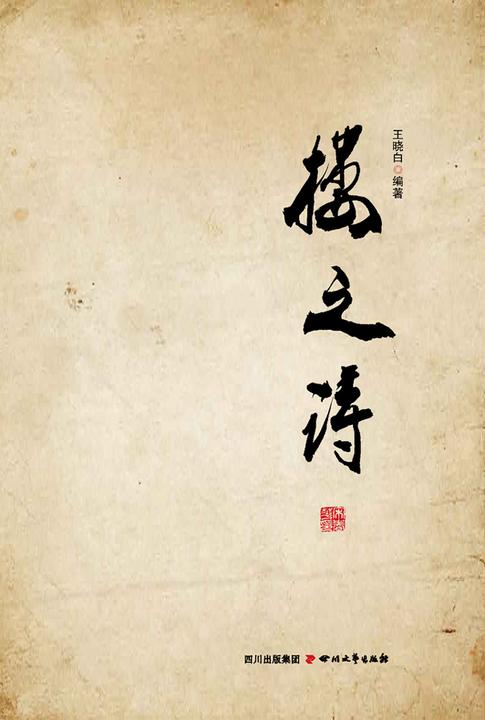 王晓白 编著
楼之诗
四川出版集团 四川文艺出版社